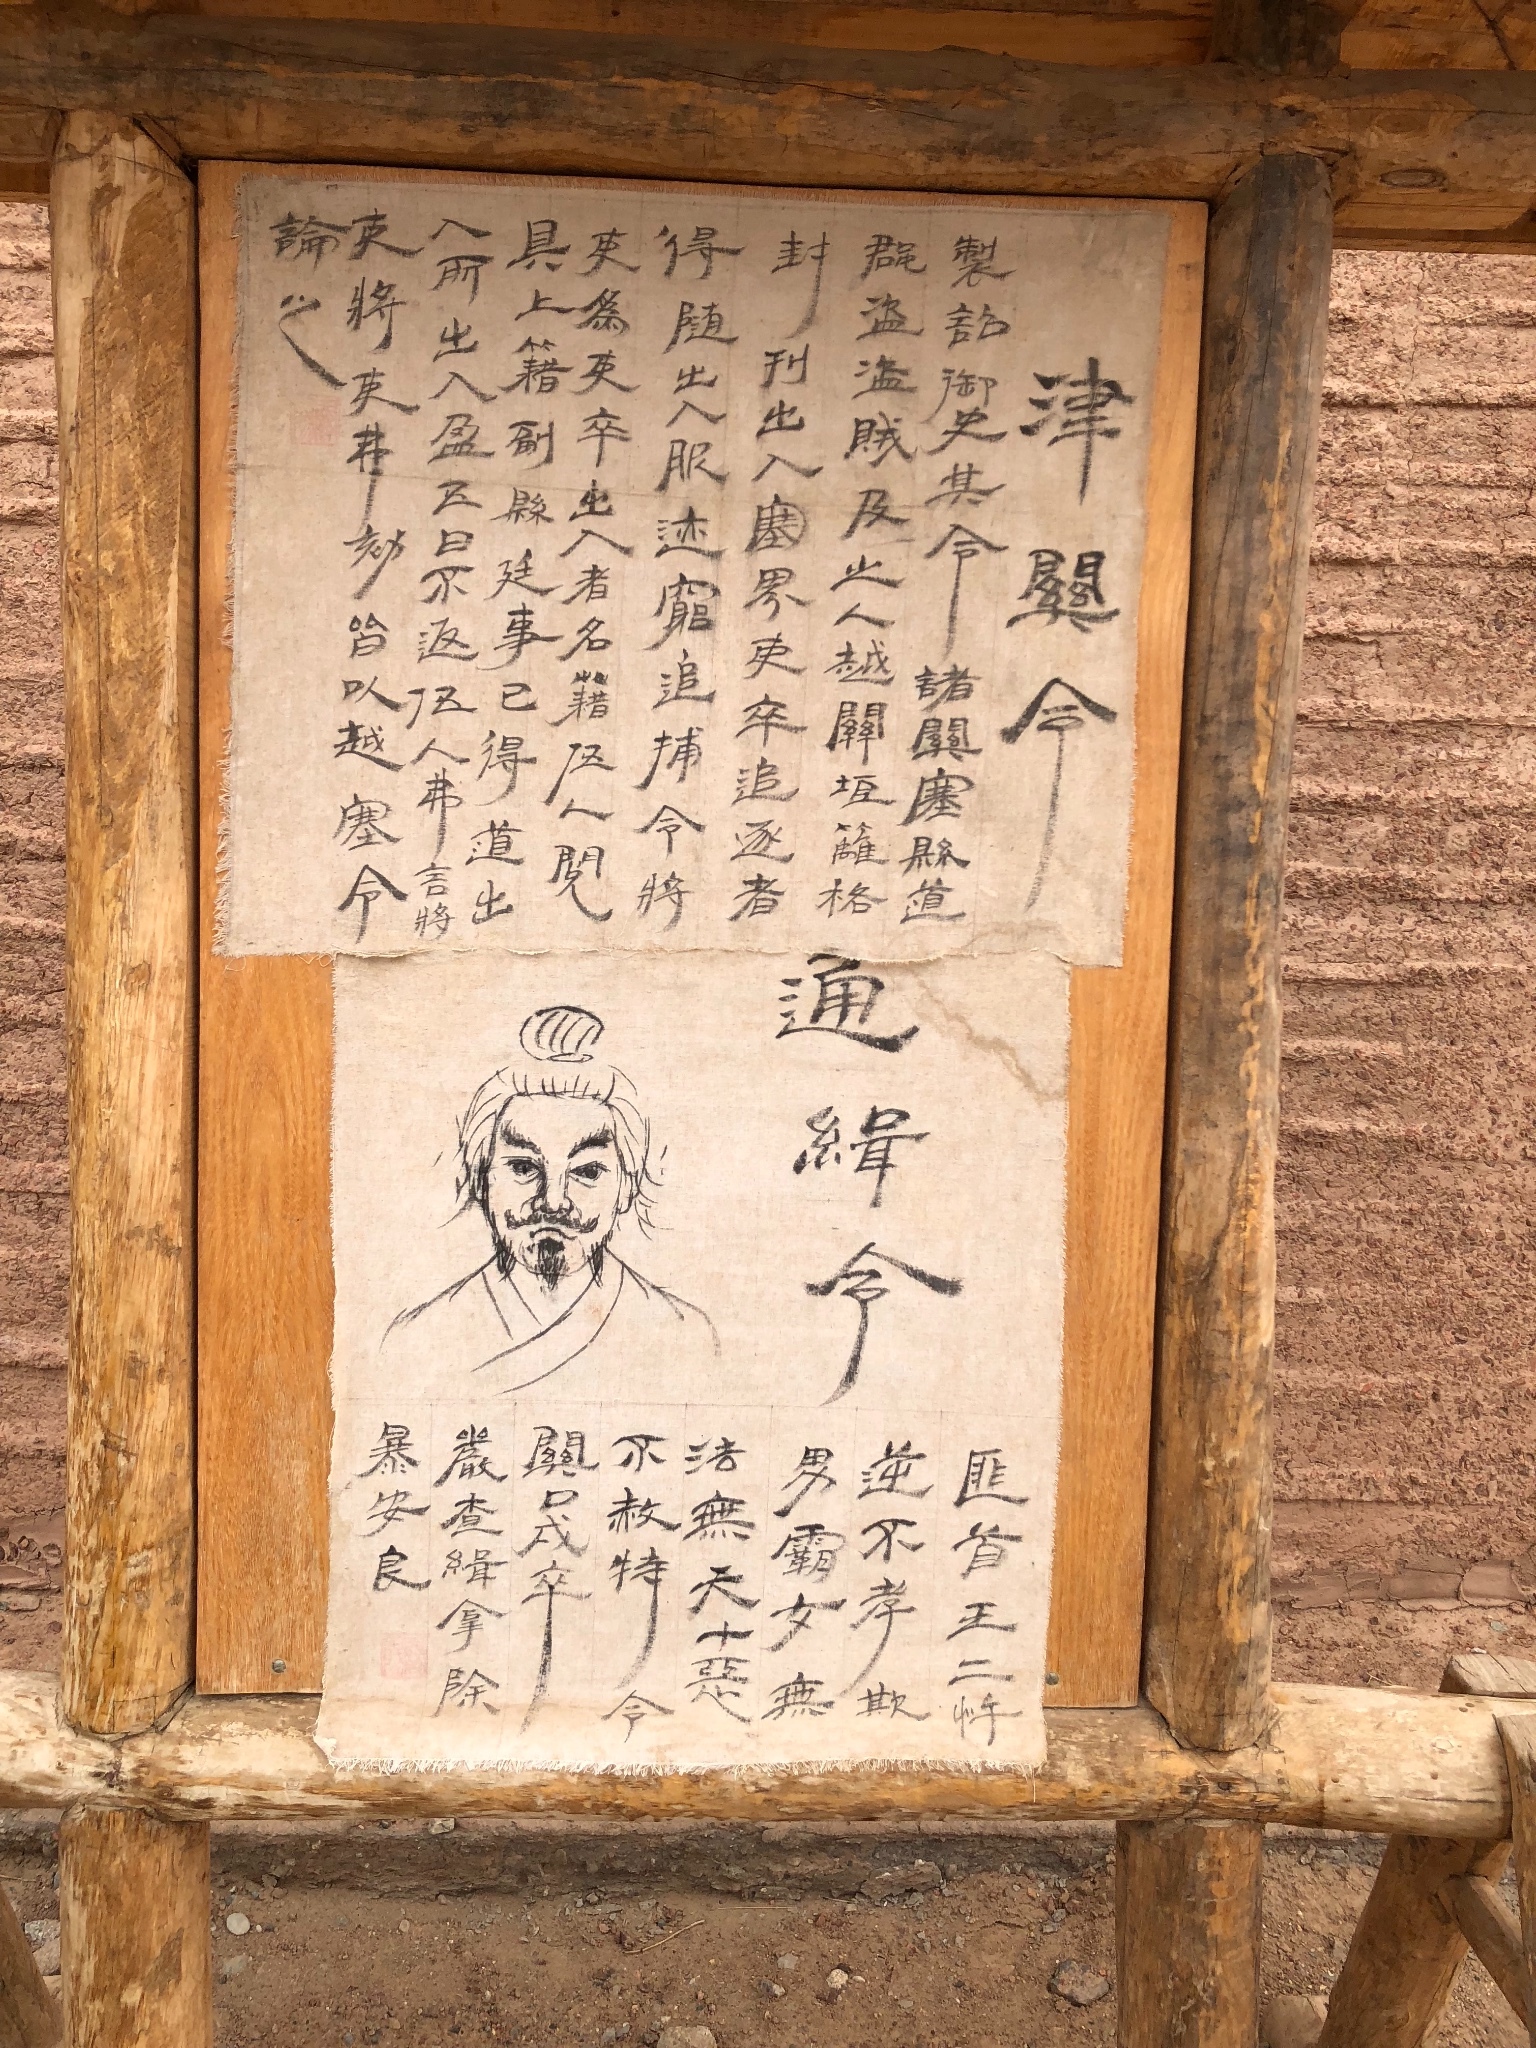 津關令
製詔御史其令諸關塞縣道
羣盜盜賊及之人越關垣籬格
封刊出入塞界吏卒追逐者
得隨出入服迹窮追捕令將
吏為吏卒出入者名籍伍人閱
具上籍副縣廷事已得道出
入所出入盈五日不返伍人弗言將
吏將吏弗劾皆以越塞令
論之
通緝令
匪首王二忤
逆不孝欺
男霸女無
法無天十惡
不赦特令
關口戍卒
嚴查緝拿除
暴安良